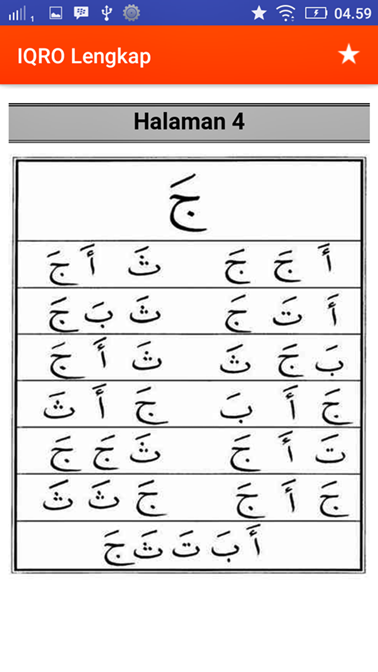 1 04.59
IQRO Lengkap
Halaman 4
جَ
أَ جَ جَ ثَ أَ جَ
أَ تَ جَ ثَ بَ جَ
بَ جَ ثَ ثَ أَ جَ
جَ أَ بَ جَ أَ ثَ
تَ أَ جَ ثَ جَ جَ
جَ أَ جَ جَ ثَ ثَ
أَ بَ تَ ثَ جَ